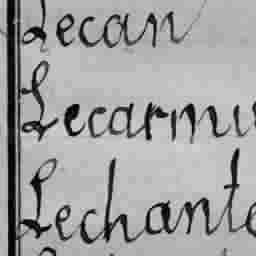 Lecan
Lecarmu
Lechante